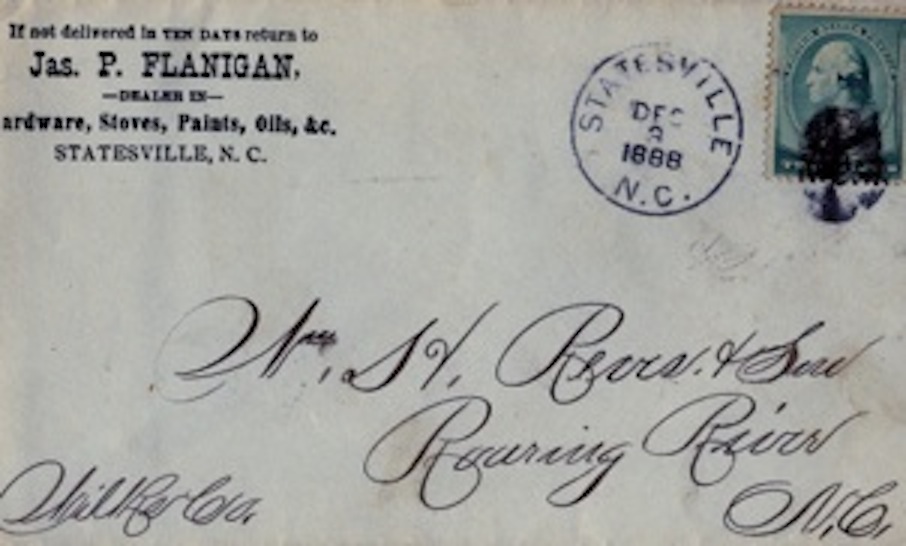 If not delivered in TEN DAYS return to
Jas. P. FLANIGAN,
—DEALER IN—
ardware, Stoves, Paints, Oils, &c.
STATESVILLE, N. C.
STATESVILLE
DEC
1888
N.C.
Wm. H. & Son
Roaring River
Wilkes Co. N.C.